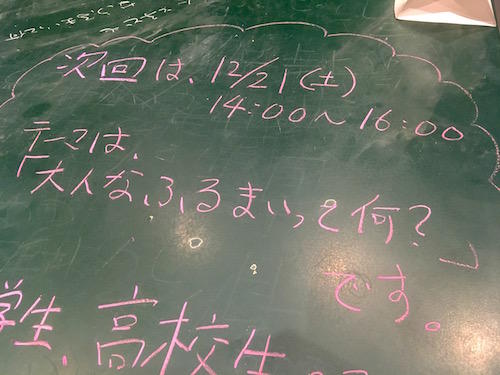 次回は、12/21(土)
14:00〜16:00
テーマは、
「大人なふるまいって何?」
です。
学生、高校生